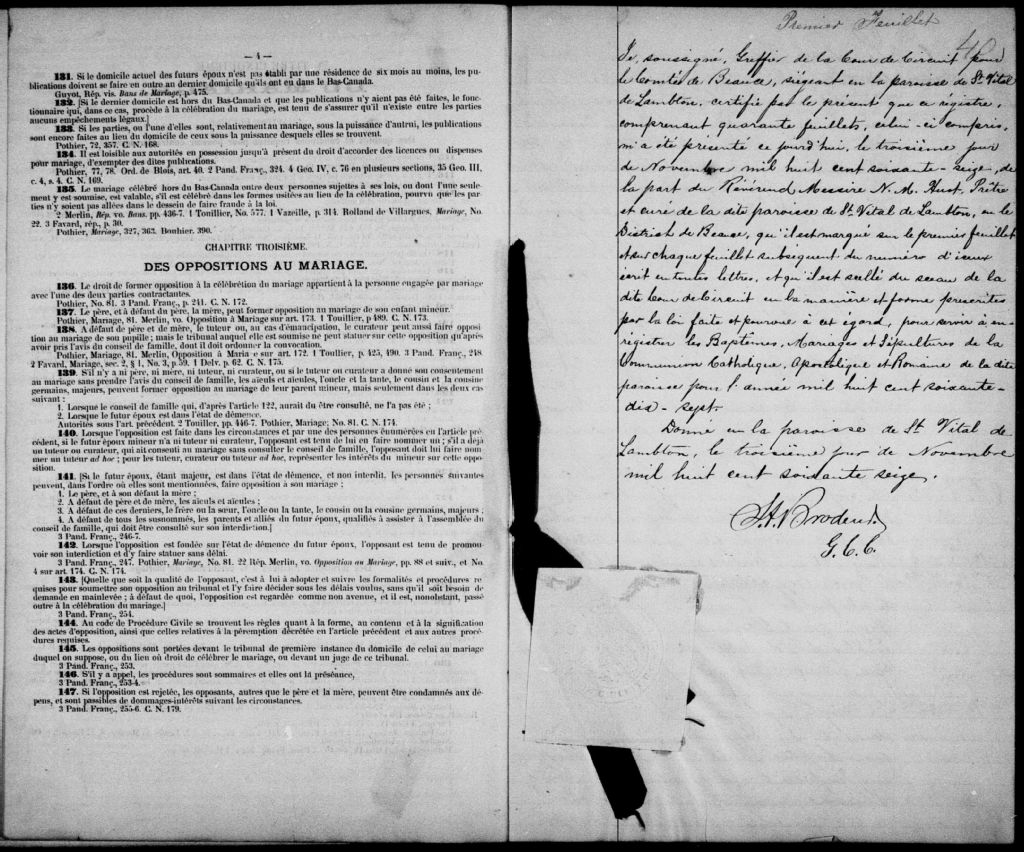 — 4 —
131. Si le domicile actuel des futurs époux n'est pas établi par une résidence de six mois au moins, les pu-
blications doivent se faire en outre au dernier domicile qu'ils ont eu dans le Bas-Canada.
Guyot, Rép. vis. Bans de Mariage, p. 475.
132. [Si le dernier domicile est hors du Bas-Canada et que les publications n'y aient pas été faites, le fonc-
tionnaire qui, dans ce cas, procède à la célébration du mariage, est tenu de s'assurer qu'il n'existe entre les parties
aucuns empêchements légaux.]
133. Si les parties, ou l'une d'elles sont, relativement au mariage, sous la puissance d'autrui, les publications
sont encore faites au lieu du domicile de ceux sous la puissance desquels elles se trouvent.
Pothier, 72, 357. C. N. 168.
134. Il est loisible aux autorités en possession jusqu'à présent du droit d'accorder des licences ou dispenses
pour mariage, d'exempter des dites publications.
Pothier, 77, 78. Ord. de Blois, art. 40. 2 Pand. Franç., 324. 4 Geo. IV, c. 76 en plusieurs sections, 35 Geo. III,
c. 4, s. 4. C. N. 169.
135. Le mariage célébré hors du Bas-Canada entre deux personnes sujettes à ses lois, ou dont l'une seule-
ment y est soumise, est valable, s'il est célébré dans les formes usitées au lieu de la célébration, pourvu que les par-
ties n'y soient pas allées dans le dessein de faire fraude à la loi.
2 Merlin, Rép. vo. Bans. pp. 436-7. 1 Tonillier, No. 577. 1 Vazeille, p. 314. Rolland de Villargues, Mariage, No.
22. 3 Favard, rép., p. 30.
Pothier, Mariage, 327, 363. Bouhier. 390.
CHAPITRE TROISIÉME.
DES OPPOSITIONS AU MARIAGE.
136. Le droit de former opposition à la célébrition du mariage appartient à la personne engagée par mariage
avec l'une des deux parties contractantes.
Pothier, No. 81. 3 Pand. Franç., p. 241. C. N. 172.
137. Le père, et à défaut du père, la mère, peut former opposition au mariage de son enfant mineur.
Pothier, Mariage, 81. Merlin, vo. Opposition à Mariage sur art. 173. 1 Touillier, p 489. C. N. 173.
138. A défaut de père et de mère, le tuteur ou, au cas d'émancipation, le curateur peut aussi faire opposi
tion au mariage de son pupille; mais le tribunal auquel elle est soumise ne peut statuer sur cette opposition qu'après
avoir pris l'avis du conseil de famille, dont il doit ordonner la convocation.
Pothier, Mariage, 81. Merlin, Opposition à Maria e sur art. 172. 1 Toullier, p. 425, 490. 3 Pand. Franç., 248
2 Favard, Mariage, sec. 2, § 1, No. 3, p. 59. 1 Delv. p. 62. C. N. 175.
139. S'il n'y a ni père, ni mère, ni tuteur, ni curateur, ou si le tuteur ou curateur a donné son consentement
au mariage sans prendre l'avis du conseil de famille, les aïeuls et aïeules, l'oncle et la tante, le cousin et la cousine
germains, majeurs, peuvent former opposition au mariage de leur parent mineur, mais seulement dans les deux cas
suivant :
1. Lorsque le conseil de famille qui, d'après l'article 122, aurait du être consulté, ne l'a pas été ;
2. Lorsque le futur époux est dans l'état de démence.
Autorités sous l'art. précédent. 2 Touiller, pp. 446-7. Pothier, Mariage; No. 81. C. N. 174.
140. Lorsque l'opposition est faite dans les circonstances et par une des personnes énumérées en l'article pré
cédent, si le futur époux mineur n'a ni tuteur ni curateur, l'opposant est tenu de lui en faire nommer un ; s'il a déjà
un tuteur ou curateur, qui ait consenti au mariage sans consulter le conseil de famille, l'opposant doit lui faire nom-
mer un tuteur ad hoc ; pour les tuteur, curateur ou tuteur ad hoc, représenter les intérêts du mineur sur cette oppo-
sition.
141. [Si le futur époux, étant majeur, est dans l'état de démence, et non interdit, les personnes suivantes
peuvent, dans l'ordre où elles sont mentionnées, faire opposition à son mariage ;
1. Le père, et à son défaut la mère ;
2. A défaut de père et de mère, les aïeuls et aïeules ;
3. A défaut de ces derniers, le frère ou la sœur, l'oncle ou la tante, le cousin ou la cousine germains, majeurs ;
4. A défaut de tous les susnommés, les parents et alliés du futur époux, qualifiés à assister à l'assemblée du
conseil de famille, qui doit être consulté sur son interdiction.]
3 Pand. Franç., 246-7.
142. Lorsque l'opposition est fondée sur l'état de démence du futur époux, l'opposant est tenu de promou-
voir son interdiction et d'y faire statuer sans délai.
3 Pand. Franç., 247. Pothier, Mariage, No. 81. 22 Rép. Merlin, vo. Opposition au Mariage, pp. 88 et suiv., et No.
4 sur art. 174. C. N. 174.
143. [Quelle que soit la qualité de l'opposant, c'est à lui à adopter et suivre les formalités et procédures re
quises pour soumettre son opposition au tribunal et l'y faire décider sous les délais voulus, sans qu'il soit besoin de
demande en mainlevée ; à défaut de quoi, l'opposition est regardée comme non avenue, et il est, nonobstant, passé
outre à la célébration du mariage.]
3 Pand. Franç., 254.
144. Au code de Procédure Civile se trouvent les règles quant à la forme, au contenu et à la signification
des actes d'opposition, ainsi que celles relatives à la péremption décrétée en l'article précédent et aux autres procé-
dures requises.
145. Les oppositions sont portées devant le tribunal de première instance du domicile de celui au mariage
duquel on suppose, ou du lieu on droit de célébrer le mariage, ou devant un juge de ce tribunal.
3 Pand. Franç., 253.
146. S'il y a appel, les procédures sont sommaires et elles ont la préséance,
3 Pand. Franç., 253-4.
147. Si l'opposition est rejetée, les opposants, autres que le père et la mère, peuvent être condamnés aux dé-
pens, et sont passibles de dommages-intérêts suivant les circonstances.
3 Pand. Franç., 255-6. C. N. 179.
Premier Feuillet
Je, soussigné, Greffier de la Cour de Circuit pour
le Comté de Beauce, siégeant en la paroisse de St. Vital
de Lambton, certifie par le présent que ce régistre,
comprenant quarante feuillets, celui-ci compris,
m'a été présenté ce jourd'hui, le troisième jour
de Novembre mil huit cent soixante-seize, de
la part du Révérend Messire N. M. Huot, Prêtre
et curé de la dite paroisse de St. Vital de Lambton, en le
District de Beauce, qu'il est marqué sur le premier feuillet
et sur chaque feuillet subséquent du numéro d'iceux
écrit en toutes lettres, et qu'il est scellé du sceau de la
dite Cour de Circuit en la manière et forme prescrites
par la loi faite et pourvue à cet égard, pour servir à en-
régistrer les Baptêmes, Mariages et Sépultures de la
Communion Catholique, Apostolique et Romaine de la dite
paroisse pour l'année mil huit cent soixante-
dix-sept.
Donné en la paroisse de St. Vital de
Lambton, le troisième jour de Novembre
mil huit cent soixante seize.
G. C. C.